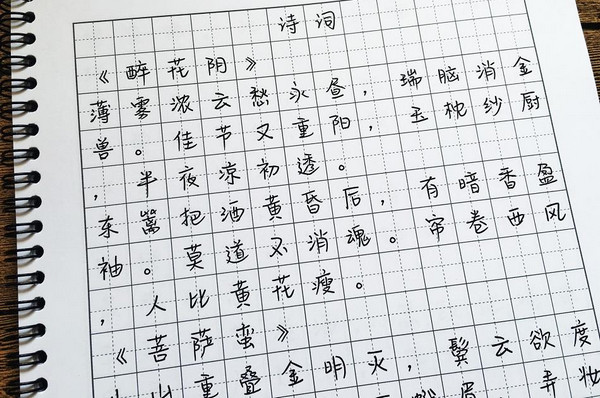 诗词
《醉花阴》
薄雾浓云愁永昼，瑞脑消金
兽。佳节又重阳，玉枕纱厨
，半夜凉初透。
东篱把酒黄昏后，有暗香盈
袖。莫道不消魂。帘卷西风
，人比黄花瘦。
《菩萨蛮》
山重叠金明灭，鬓云欲度
眉，弄妆